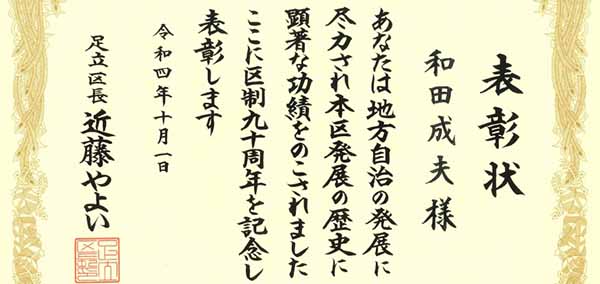 表彰状
和田成夫様
あなたは地方自治の発展に
尽力され本区発展の歴史に
顕著な功績をのこされました
ここに区制九十周年を記念し
表彰します
令和四年十月一日
足立区長 近藤やよい